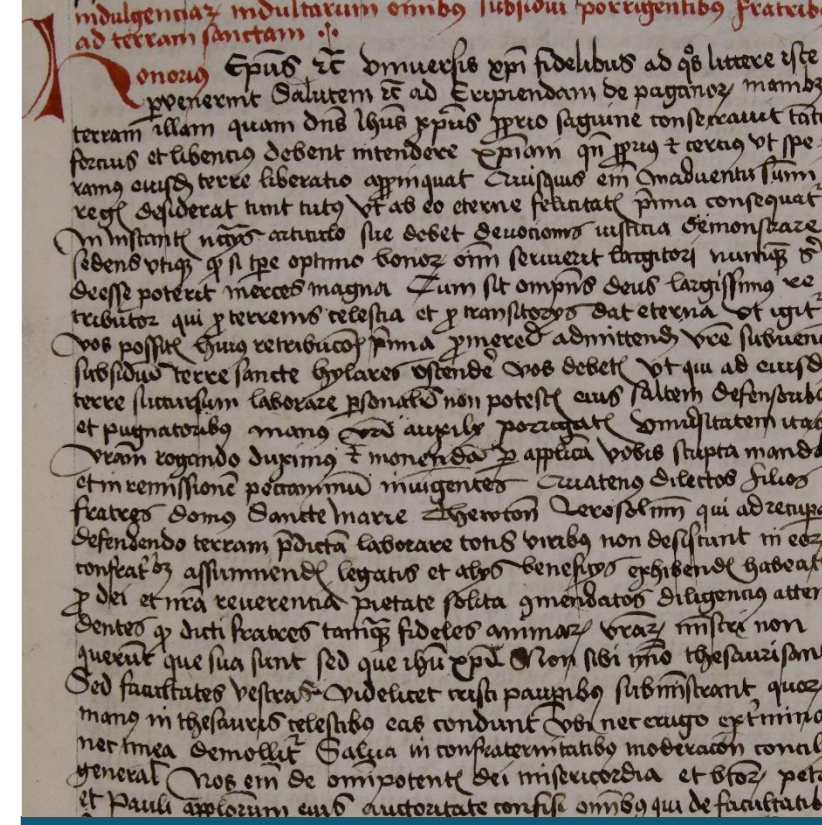 indulgenciaꝝ indultarum om̄ibꝯ porrigentibꝯ fratribꝯ
ad terram sanctam
Honoriꝯ Ep̄us ⁊c̄ vniuersis xp̄i fidelibus ad q̄s littere iste
ꝑvenerint Salutem ⁊c̄ ad Eripiendam de paganoꝝ manibꝫ
terram illam quam dn̄s ih̄us xp̄us ꝓprio saguine consecrauit tāto
forcius et libencius debent intendere xp̄iani qn̄ ꝓpius ⁊ cercius vt spe
ramꝯ eiusdē terre liberatio app̄inquat Quisquis em̄ in aduentu sūmi
desiderat vt ab eo eterne felicitatꝭ p̄mia consequat᷑
in articulo sue debet deuocionis iusticia demonstrare
si tp̄e optimo bonoꝝ om̄i seruierit largitori
deesse poterit merces magna Cum sit omp̄ns deus largissimꝯ re
tributor qui ꝓ terrenis celestia et ꝓ transitorijs dat eterna vt igit᷑
vos possitꝭ huiꝯ p̄mia ꝓmereri vr̄e
subsidiū terre sancte hylares ostendē vos debetꝭ vt qui ad eiusdē
terre succursum laborare ꝑsonalit᷑ non potestꝭ eius saltem defensoribꝯ
et pugnatoribꝯ manꝯ vr̄i auxilij porrigatꝭ vniūsitatem itaqꝫ
vr̄am rogando duximꝯ ⁊ monendā ꝑ ap̄lica vobis scripta mandā
et in remissionē peccaminū iniūgentes Quatenꝯ dilectos filios
fratres domꝯ Sancte Marie Jerosolim̄ qui ad
defendendo terram p̄dictā laborare totis viribꝯ non desistunt in eoꝝ
legatis et alijs beneficijs exhibendꝭ habeat
ꝓ dei et nr̄a reuerentia pietate solita ꝯmendatos diligenciꝯ atten
dentes qꝫ dicti fratres tamqꝫ fideles animaꝝ vr̄aꝝ mīstri non
querūt que sua sunt sed que ih̄u xp̄i Non sibi īmo thesaurisant
Sed facultates vestras videlicet cristi pauꝑibꝯ submīstrant quoꝝ
manꝯ in thesauris celestibꝯ eas condunt vbi nec erugo
nec tinea demollit᷑ Salua in confraternitatibꝯ moderacōn concil
general Nos em̄ de om̄ipotentꝭ dei misericordia et btōꝝ petri
et Pauli ap̄lorum eius auctoritate confisi om̄ibꝯ qui de facultatibꝯ